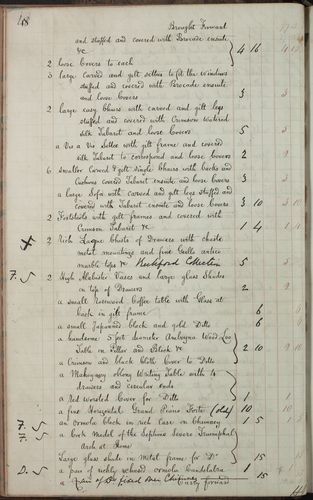 48
Brought Forward
and stuffed and covered with Brocade ensuite
&c 4 16
2 loose Covers to each
3 large Carved and gilt settees to fit the windows
stuffed and covered with Brocade ensuite
and loose Covers 3 3
2 large easy Chairs with carved and gilt legs
stuffed and covered with Crimson watered
silk Tabaret and loose Covers 5 3
a Vis a Vis Settee with gilt frame and covered
silk Tabaret to correspond and loose Covers 2 2
6 smaller Carved & gilt single Chairs with backs and
Cushions covered Tabaret ensuite and loose Covers 3 3
a large Sofa with Carved and gilt legs stuffed and
covered with Tabaret ensuite and loose Covers 3 10 3 10
2 Footstools with gilt frames and covered with
Crimson Tabaret &c 1 4 1 4
2 Rich Chests of Drawers with chaste
metal mountings and fine antico
marble tops &c Beckford Collection 5 5
F. 2 High Alabaster Vases and large glass Shades
on top of Drawers 2 2
a small Rosewood Coffee table with Glass at
back in gilt frame 6
a small Japanned black and gold Ditto 6
a handsome 5 feet diameter Amboyna Wood Loo
Table on Pillar and Block &c 2 10
a Crimson and black cloth Cover to Ditto
a Mahogany oblong Writing Table with 4
drawers and circular ends
a Red worsted Cover for Ditto 1 1
a fine Horizontal Grand Piano Forte (old) 10 10
F. an Ormolu block in rich Case on Chimney 1 5 1 5
F. a Cork Model of the Septimus Severus Triumphal
Arch at Rome
Large glass shade in Metal frame for Do 15
D. a pair of richly relieved ormolu Candelabra
a pair of Do fixed over Chimney
Carry forward 1 15